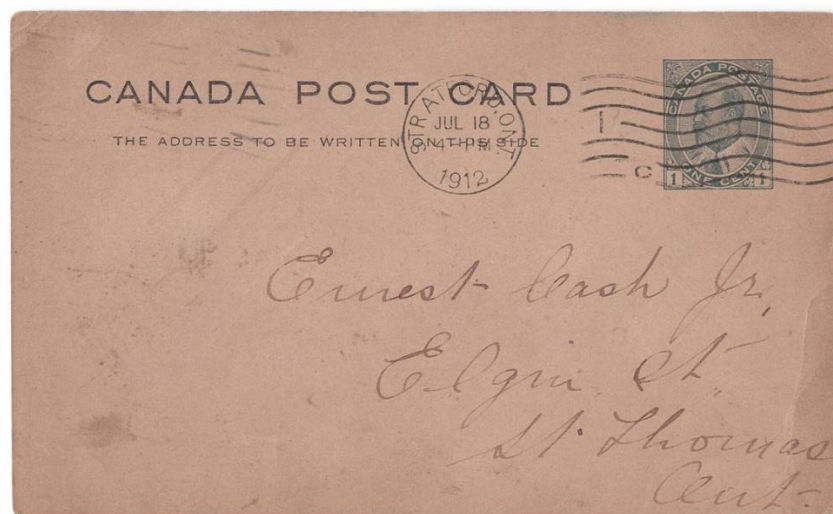 CANADA POST CARD
THE ADDRESS TO BE WRITTEN ON THIS SIDE
STRATFORD, ONT.
JUL 18
4 - PM
1912
CANADA POSTAGE
1 ONE CENT 1
C
Ernest Cash Jr,
Elgin St
St. Thomas
Ont.